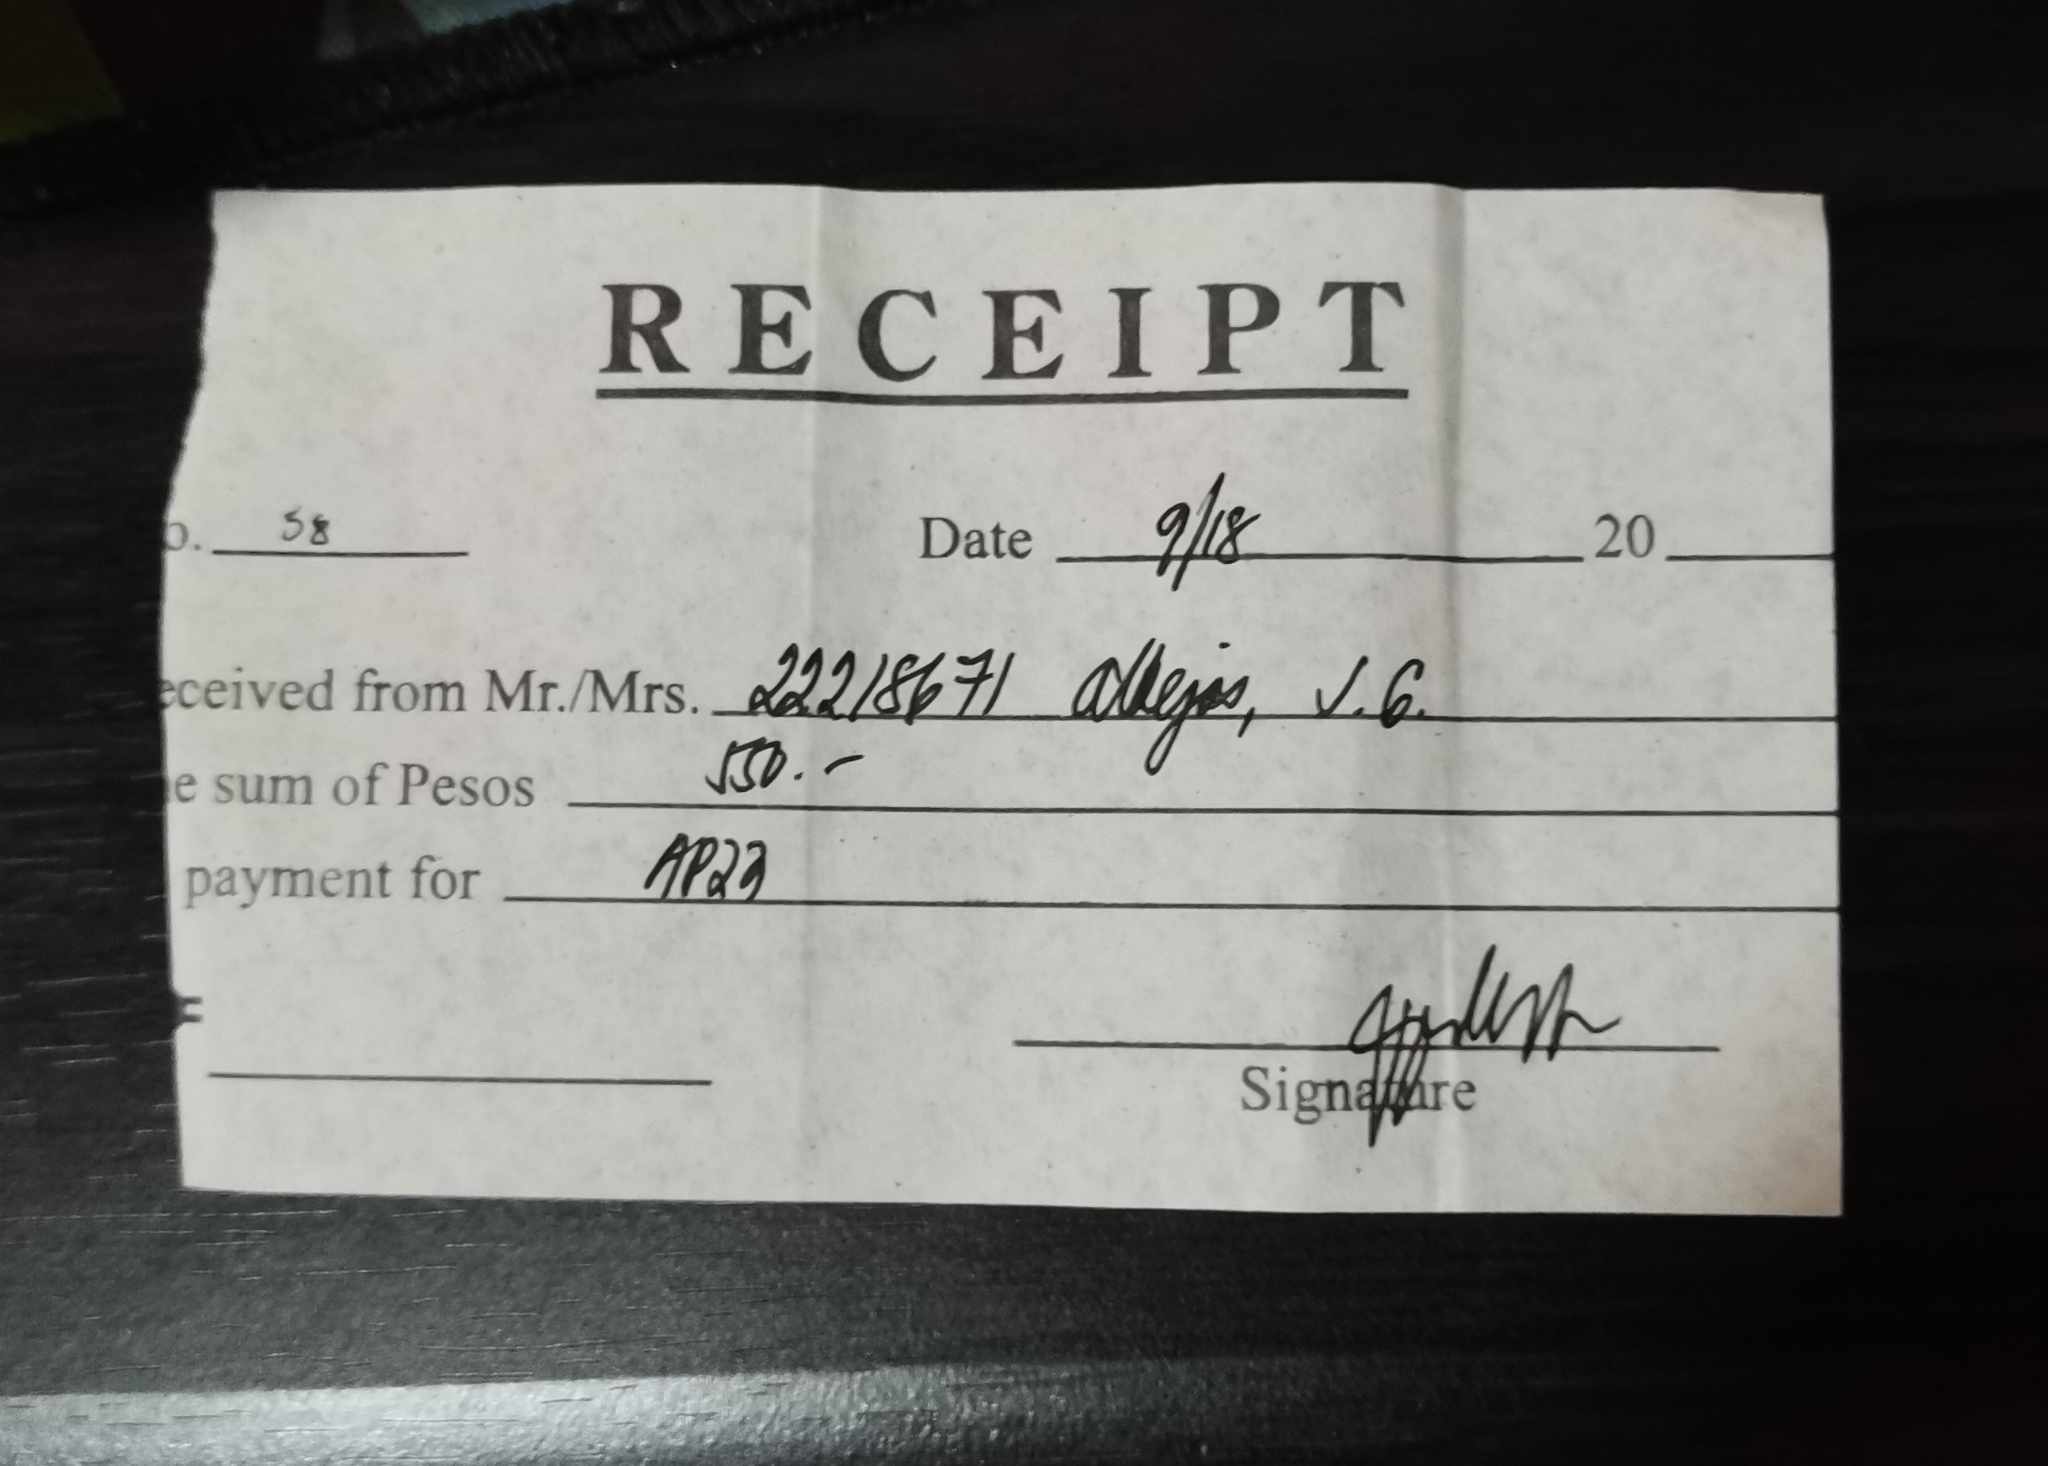 RECEIPT
o. 58 Date 9/18 20
eceived from Mr./Mrs. 22218671 Allejos, J.G.
e sum of Pesos 550.-
payment for AP23
Signature